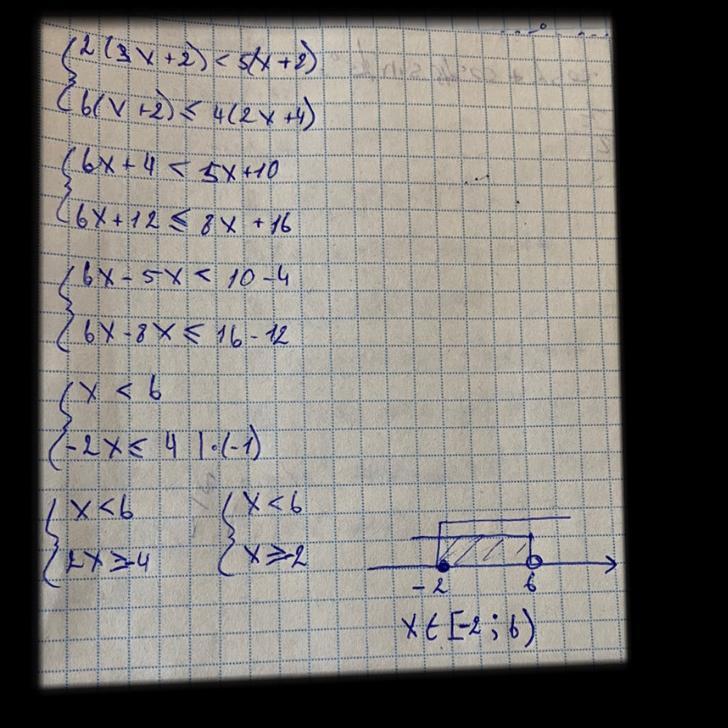 2(3x+2) < 5(x+2)
6(x+2) ≤ 4(2x+4)
6x+4 < 5x+10
6x+12 ≤ 8x+16
6x-5x < 10-4
6x-8x ≤ 16-12
x < 6
-2x ≤ 4 |·(-1)
x<6
2x≥-4
x<6
x≥-2
-2 6
x∈[-2;6)